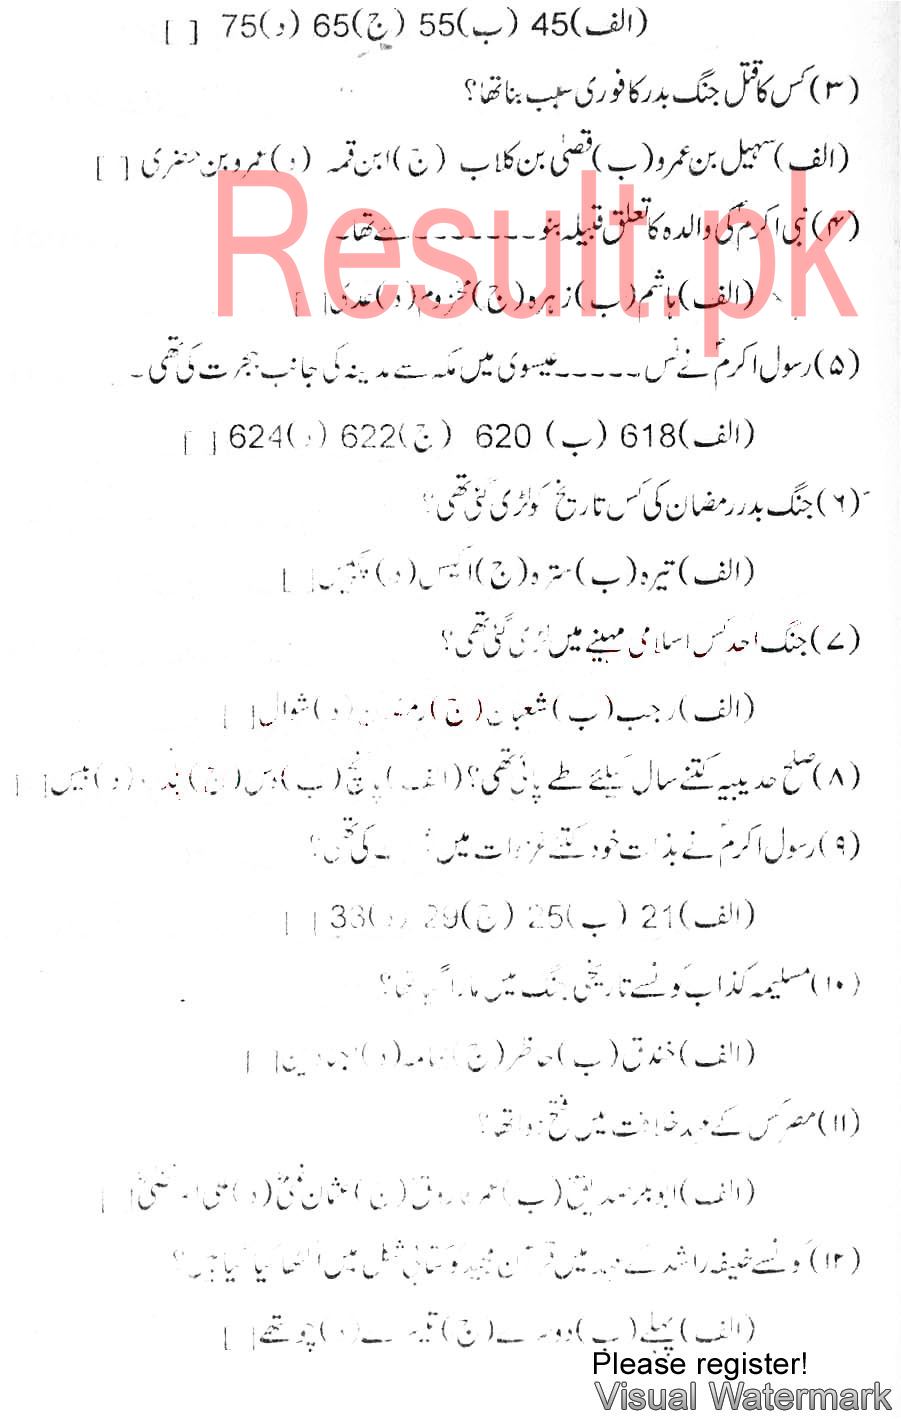 (الف)45 (ب)55 (ج)65 (د)75 [ ]
(۳) کس کا قتل جنگ بدر کا فوری سبب بنا تھا؟
(الف) سہیل بن عمرو (ب) قصیٰ بن کلاب (ج) ابن قمہ (د) عمرو بن حضری [ ]
(۴) نبی اکرمؐ کی والدہ کا تعلق قبیلہ بنو۔۔۔۔۔۔۔ سے تھا۔
(الف) ہاشم (ب) زہرہ (ج) مخزوم (د) عدی [ ]
(۵) رسول اکرمؐ نے سن ۔۔۔۔۔ عیسوی میں مکہ سے مدینہ کی جانب ہجرت کی تھی۔
(الف)618 (ب) 620 (ج)622 (د)624 [ ]
(۶) جنگ بدر رمضان کی کس تاریخ کو لڑی گئی تھی؟
(الف) تیرہ (ب) سترہ (ج) اکیس (د) [ ]
(۷) جنگ احد کس اسلامی مہینے میں لڑی گئی تھی؟
(الف) رجب (ب) شعبان (ج) رمضان (د) شوال [ ]
(۸) صلح حدیبیہ کتنے سال کیلئے طے پائی تھی؟ (الف) پانچ (ب) دس (ج) پندرہ (د) بیس [ ]
(۹) رسول اکرمؐ نے بذات خود کتنے غزوات میں کی تھی؟
(الف)21 (ب)25 (ج)29 (د)33 [ ]
(۱۰) مسلیمہ کذاب کونسے تاریخی جنگ میں مارا گیا تھا؟
(الف) خندق (ب) (ج) (د) [ ]
(۱۱) مصر کس کے عہد خلافت میں فتح ہوا تھا؟
(الف) ابوبکر صدیقؓ (ب) عمر فاروقؓ (ج) عثمان غنیؓ (د) [ ]
(۱۲) کونسے خلیفہ راشد کے عہد میں قرآن مجید کو کتابی شکل میں اکٹھا کیا گیا
(الف) پہلے (ب) دوسرے (ج) تیسرے (د) چوتھے [ ]
Result.pk
Please register!
Visual Watermark